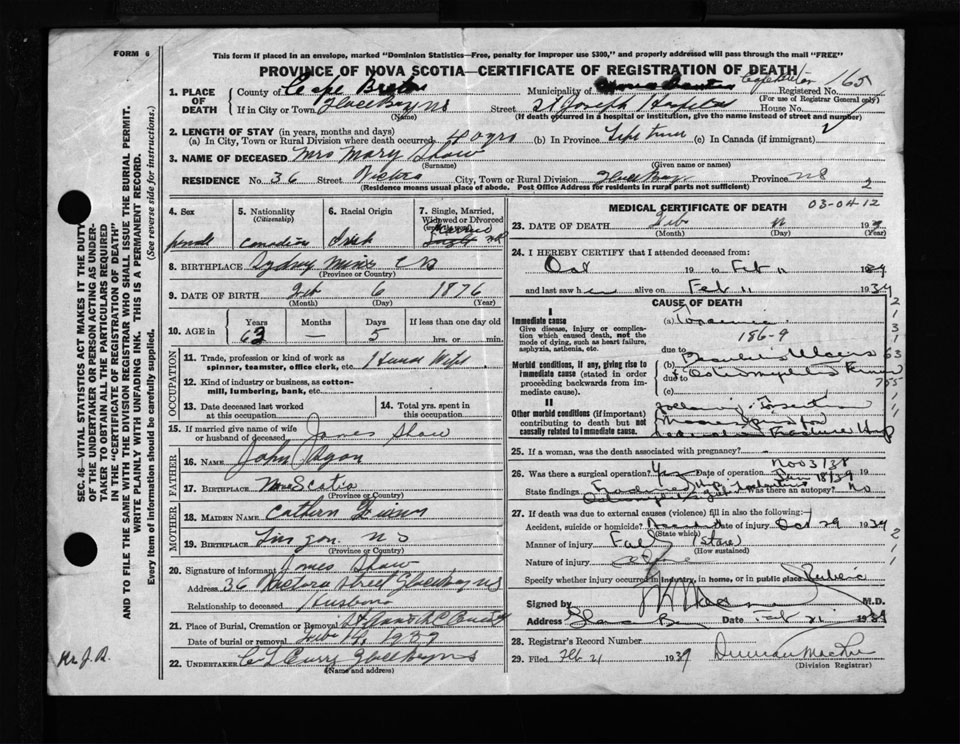 FORM 6
This form if placed in an envelope, marked "Dominion Statistics—Free, penalty for improper use $300," and properly addressed will pass through the mail "FREE"
PROVINCE OF NOVA SCOTIA—CERTIFICATE OF REGISTRATION OF DEATH
1. PLACE OF DEATH
County of Cape Breton Municipality of Cape Breton Registered No. 165
(For use of Registrar General only)
If in City or Town Glace Bay NS Street St Joseph Hospital House No.
(Name) (If death occurred in a hospital or institution, give the name instead of street and number)
2. LENGTH OF STAY (in years, months and days)
(a) In City, Town or Rural Division where death occurred 40 yrs (b) In Province Life time (c) In Canada (if immigrant)
3. NAME OF DECEASED Mrs Mary Shaw
(Surname) (Given name or names)
RESIDENCE No. 36 Street Victoria City, Town or Rural Division Glace Bay Province NS 2
(Residence means usual place of abode. Post Office Address for residents in rural parts not sufficient)
4. Sex
female
5. Nationality
(Citizenship)
Canadian
6. Racial Origin
Irish
7. Single, Married, Widowed or Divorced
8. BIRTHPLACE Sydney Mines C B
(Province or Country)
9. DATE OF BIRTH Feb 6 1876
(Month) (Day) (Year)
10. AGE in Years Months Days If less than one day
63 — 5 hrs. or min.
OCCUPATION
11. Trade, profession or kind of work as spinner, teamster, office clerk, etc. House Wife
12. Kind of industry or business, as cotton-mill, lumbering, bank, etc.
13. Date deceased last worked at this occupation
14. Total yrs. spent in this occupation
15. If married give name of wife or husband of deceased James Shaw
FATHER
16. NAME John Ryan
17. BIRTHPLACE Nova Scotia
(Province or Country)
MOTHER
18. MAIDEN NAME Cathern
19. BIRTHPLACE Lingan. NS
(Province or Country)
20. Signature of informant James Shaw
Address 36 Victoria Street Glace Bay NS
Relationship to deceased Husband
21. Place of Burial, Cremation or Removal
Date of burial or removal Feb 14 1939
22. UNDERTAKER C L Curry Glace Bay NS
(Name and address)
MEDICAL CERTIFICATE OF DEATH
03-04 12
23. DATE OF DEATH Feb 11 1939
(Month) (Day) (Year)
24. I HEREBY CERTIFY that I attended deceased from:
Oct 19 to Feb 11 1939
and last saw her alive on Feb 11 1939
CAUSE OF DEATH
I
Immediate cause
Give disease, injury or complication which caused death, not the mode of dying, such as heart failure, asphyxia, asthenia, etc.
(a) Toxaemia
186-9
due to
Morbid conditions, if any, giving rise to immediate cause (stated in order proceeding backwards from immediate cause).
(b)
due to
(c)
II
Other morbid conditions (if important) contributing to death but not causally related to immediate cause.
following
25. If a woman, was the death associated with pregnancy?
26. Was there a surgical operation? Yes Date of operation Nov 3/38
18/39
State findings Was there an autopsy? No
27. If death was due to external causes (violence) fill in also the following:
Accident, suicide or homicide? Accident Date of injury Oct 29 1939
(State which)
Manner of injury Fall (Stove)
(How sustained)
Nature of injury
Specify whether injury occurred in industry, in home, or in public place
Signed by M.D.
Address Glace Bay Date Feb 21 1939
28. Registrar's Record Number
29. Filed Feb 21 1939
(Division Registrar)
SEC. 46—VITAL STATISTICS ACT MAKES IT THE DUTY OF THE UNDERTAKER OR PERSON ACTING AS UNDERTAKER TO OBTAIN ALL THE PARTICULARS REQUIRED IN THE "CERTIFICATE OF REGISTRATION OF DEATH" AND TO FILE THE SAME WITH THE DIVISION REGISTRAR WHO SHALL ISSUE THE BURIAL PERMIT.
WRITE PLAINLY WITH UNFADING INK. THIS IS A PERMANENT RECORD.
Every item of information should be carefully supplied. (See reverse side for instructions.)